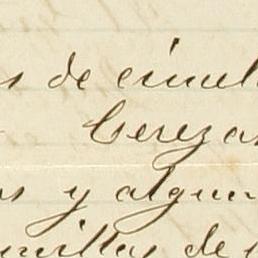 s de ciruel
Cerezas
as y algun
millas de